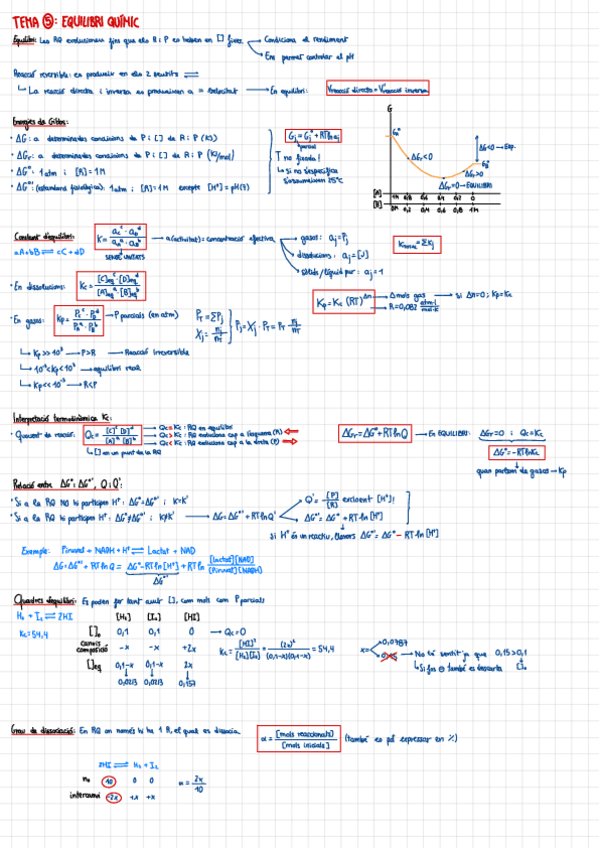 TEMA ⑤: EQUILIBRI QUÍMIC
Equilibri: Les RQ evolucionen fins que els R i P es troben en [] fixes → Condiciona el rendiment
→ Ens permet controlar el pH
Reacció reversible: es produeix en els 2 sentits ⇌
↳ La reacció directa i inversa es produeixen a = velocitat → En equilibri: Vreacció directa = Vreacció inversa
Energies de Gibbs:
· ΔG: a determinades condicions de P i [] de R i P (KJ)
· ΔGr: a determinades condicions de P i [] de R i P (KJ/mol)
· ΔG°: 1 atm i [R] = 1M
· ΔG°' (estàndard fisiològica): 1 atm i [R] = 1M excepte [H⁺] = pH(7)
Gj = Gj° + RTln aj
↳ parcial
T no fixada!
↳ si no s'especifica s'assumeixen 25°C
G
ΔGr<0
ΔGr=0→EQUILIBRI
ΔGr>0
ΔG<0→Esp.
[A] 1M 0,8 0,6 0,4 0,2 0
[B] 0M 0,2 0,4 0,6 0,8 1M
Constant d'equilibri:
aA+bB ⇌ cC+dD
K = aC^c · aD^d / aA^a · aB^b
SENSE UNITATS
→ a (activitat) = concentració efectiva
→ gasos: aj = Pj
→ dissolucions: aj = [J]
→ sòlids/líquid pur: aj = 1
· En dissolucions: Kc = [C]eq^c · [D]eq^d / [A]eq^a · [B]eq^b
· En gasos: Kp = PC^c · PD^d / PA^a · PB^b → P parcials (en atm)
PT = ΣPj
Xj = nj / nT
Pj = Xj · PT = PT nj / nT
Kp = Kc (RT)^Δn → Δ mols gas → si Δn=0; Kp=Kc
→ R = 0,082 atm·l / mol·K
↳ Kp >> 10³ → P>R → Reacció irreversible
↳ 10⁻³<Kp<10³ → equilibri real
↳ Kp << 10⁻³ → R<P
Interpretació termodinàmica Kc:
· Quocient de reacció: Qc = [C]^c [D]^d / [A]^a [B]^b
↳ [] en un punt de la RQ
→ Qc = Kc: RQ en equilibri
→ Qc > Kc: RQ evoluciona cap a l'esquerra (R) ⇐
→ Qc < Kc: RQ evoluciona cap a la dreta (P) ⇒
ΔGr = ΔG° + RTlnQ → En EQUILIBRI: ΔGr = 0 ; Qc = Kc
ΔG° = -RTlnKc
quan parlem de gasos → Kp
Relació entre ΔG° i ΔG°', Q i Q':
· Si a la RQ NO hi participen H⁺: ΔG°=ΔG°' ; K=K'
· Si a la RQ hi participen H⁺: ΔG°≠ΔG°' ; K≠K' → ΔG = ΔG°' + RTlnQ'
→ Q' = [P] / [R] excloent [H⁺]!
→ ΔG°' = ΔG° + RTln [H⁺]
↓
si H⁺ és un reactiu, llavors ΔG°' = ΔG° - RTln [H⁺]
Exemple: Piruvat + NADH + H⁺ ⇌ Lactat + NAD
ΔG = ΔG°' + RTlnQ = ΔG° - RTln[H⁺] + RTln [Lactat][NAD] / [Piruvat][NADH]
ΔG°'
Quadres d'equilibri: Es poden fer tant amb [], com mols com P parcials
H₂ + I₂ ⇌ 2HI
Kc = 54,4
[H₂] [I₂] [HI]
[]₀ 0,1 0,1 0 → Qc=0
canvis composició -x -x +2x
[]eq 0,1-x 0,1-x 2x
0,0213 0,0213 0,157
Kc = [HI]² / [H₂][I₂] = (2x)² / (0,1-x)(0,1-x) = 54,4
x= 0,0787
→ No té sentit ja que 0,15>0,1
↳ Si fos ⊖ també es descarta []₀
Grau de dissociació: En RQ on només hi ha 1 R, el qual es dissocia
α = [mols reaccionats] / [mols inicials] (també es pot expressar en %)
2HI ⇌ H₂ + I₂
n₀ 10 0 0
intercanvi -2x +x +x
α = 2x / 10